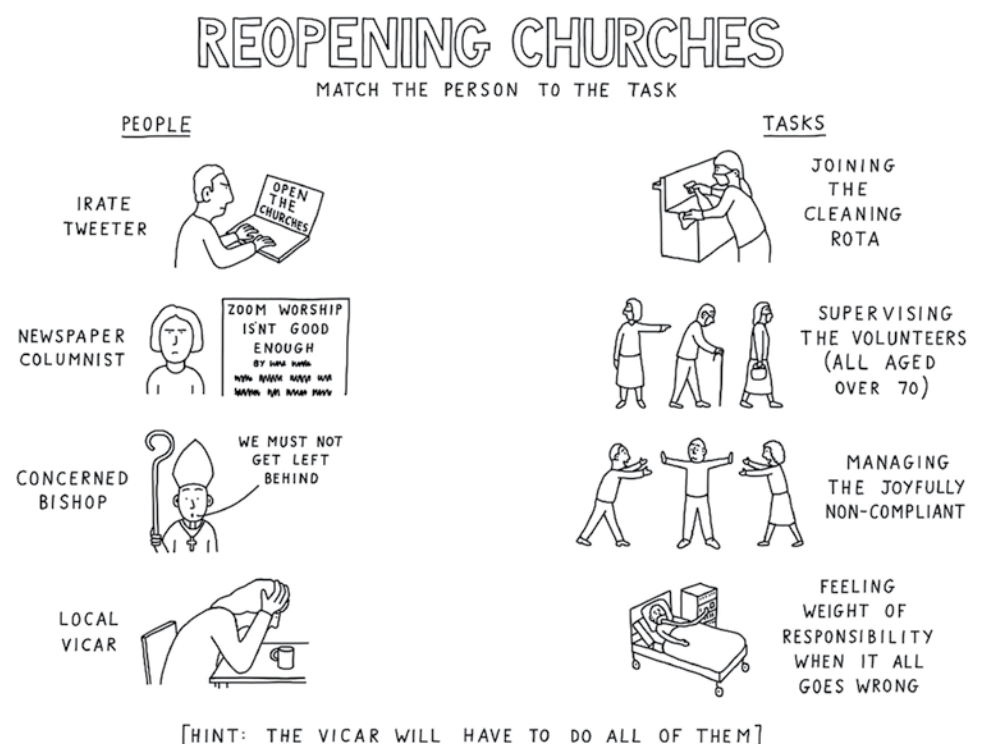 REOPENING CHURCHES
MATCH THE PERSON TO THE TASK
PEOPLE
IRATE
TWEETER
OPEN
THE
CHURCHES
NEWSPAPER
COLUMNIST
ZOOM WORSHIP
IS'NT GOOD
ENOUGH
BY
CONCERNED
BISHOP
WE MUST NOT
GET LEFT
BEHIND
LOCAL
VICAR
TASKS
JOINING
THE
CLEANING
ROTA
SUPERVISING
THE VOLUNTEERS
(ALL AGED
OVER 70)
MANAGING
THE JOYFULLY
NON-COMPLIANT
FEELING
WEIGHT OF
RESPONSIBILITY
WHEN IT ALL
GOES WRONG
[HINT: THE VICAR WILL HAVE TO DO ALL OF THEM]